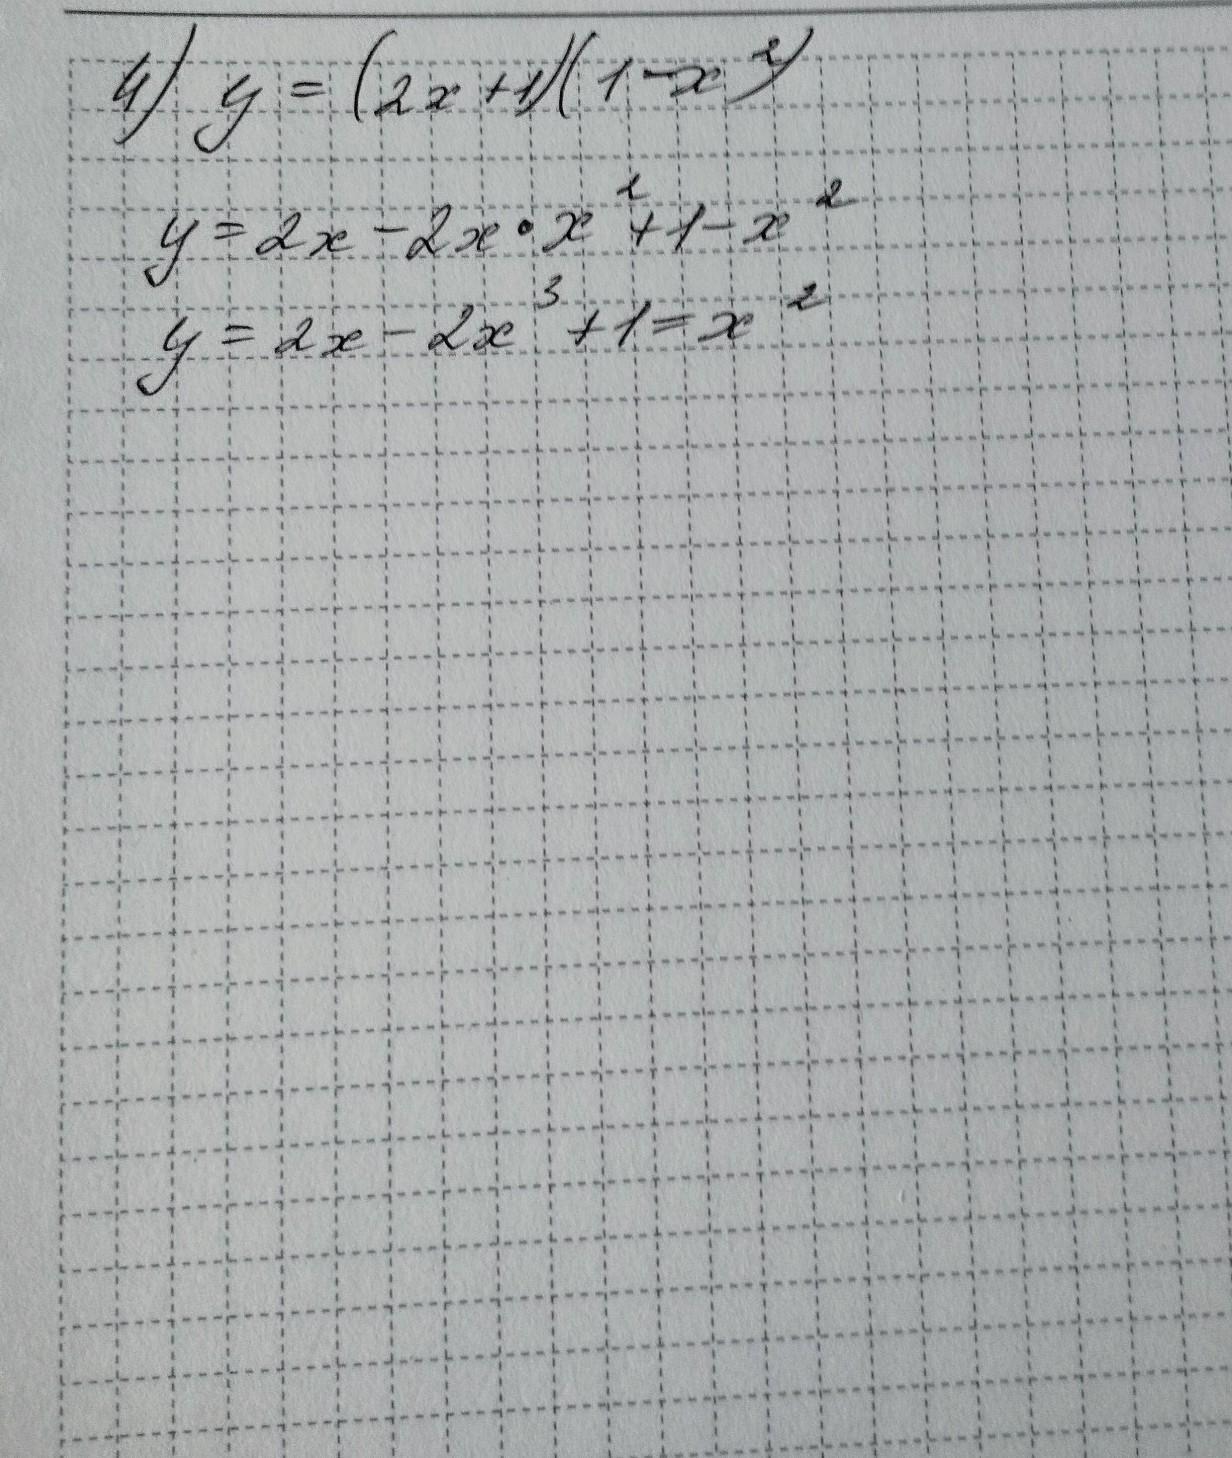 4) y = (2x+1)(1-x²)
y = 2x - 2x • x² + 1 - x²
y = 2x - 2x³ + 1 = x²